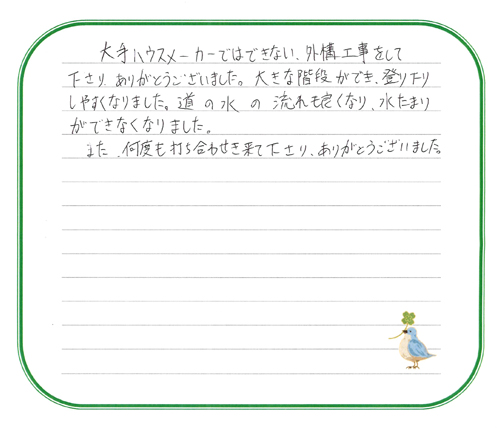 大手ハウスメーカーではできない、外構工事をして
下さり、ありがとうございました。大きな階段ができ、登り下り
しやすくなりました。道の水の流れも良くなり、水たまり
ができなくなりました。
また、何度も打ち合わせき来て下さり、ありがとうございました。